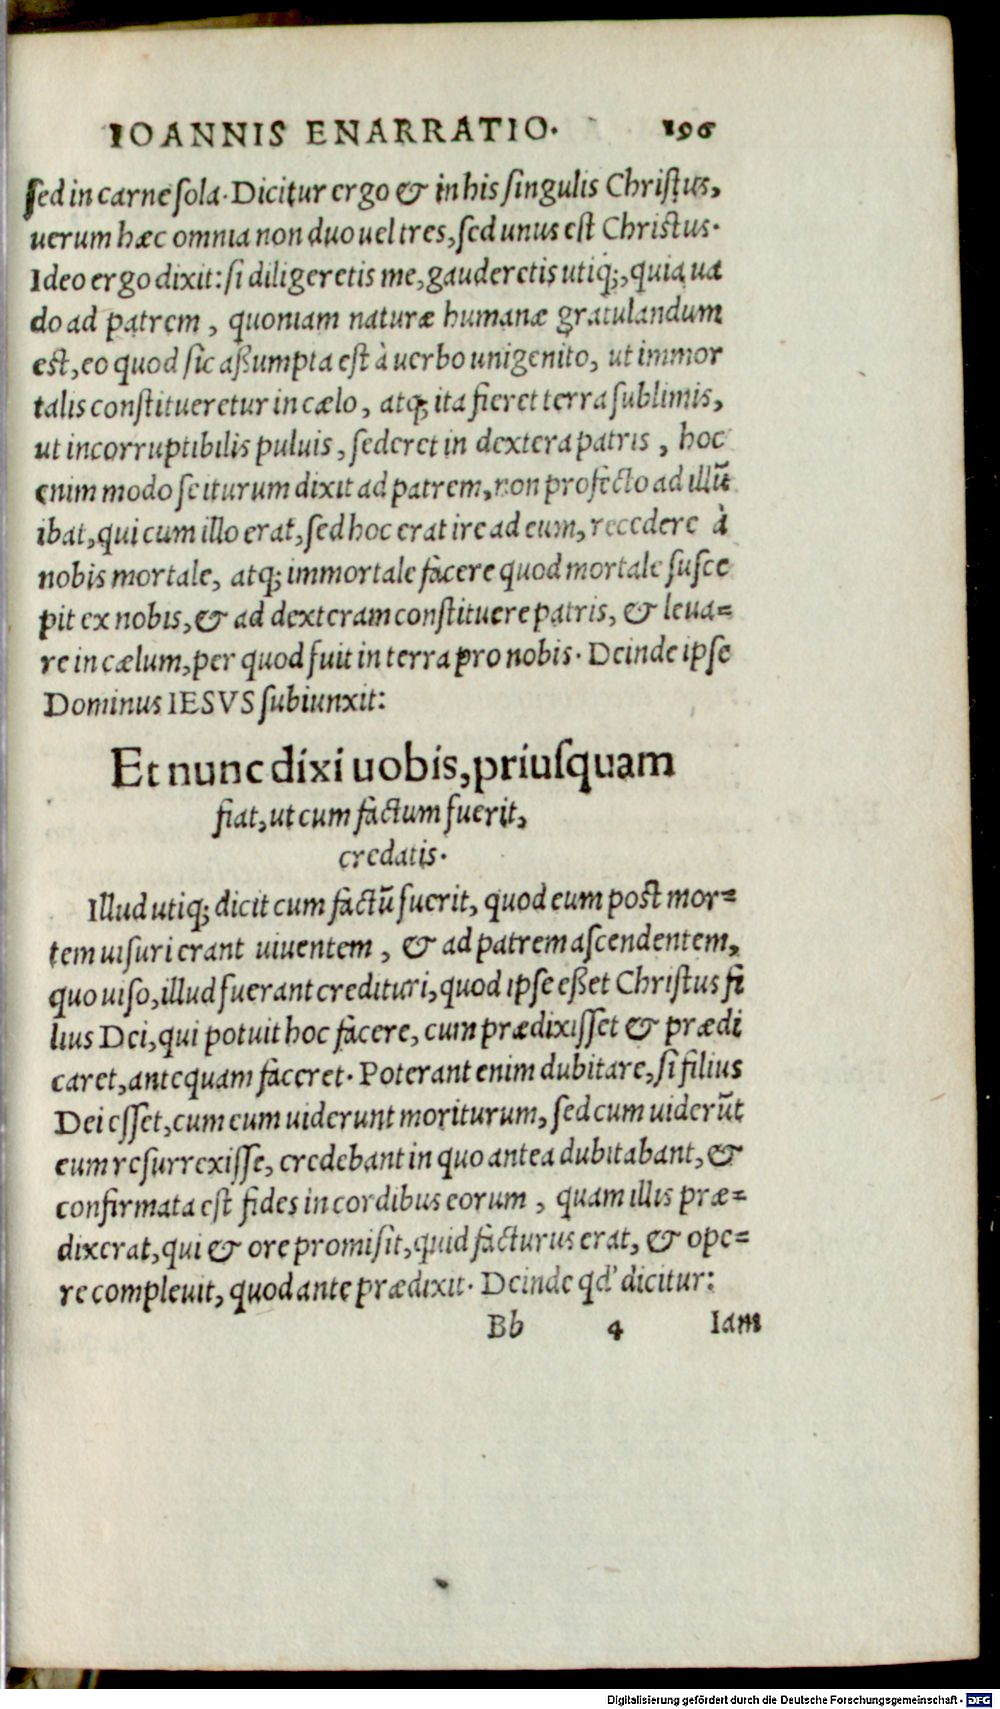 IOANNIS ENARRATIO. 196
sed in carne sola. Dicitur ergo & in his singulis Christus,
uerum hæc omnia non duo uel tres, sed unus est Christus.
Ideo ergo dixit: si diligeretis me, gauderetis utiq;, quia ua
do ad patrem, quoniam naturæ humanæ gratulandum
est, eo quod sic aßumpta est à uerbo unigenito, ut immor
talis constitueretur in cælo, atq; ita fieret terra sublimis,
ut incorruptibilis puluis, sederet in dextera patris, hoc
enim modo se iturum dixit ad patrem, non profecto ad illũ
ibat, qui cum illo erat, sed hoc erat ire ad eum, recedere à
nobis mortale, atq; immortale facere quod mortale susce
pit ex nobis, & ad dexteram constituere patris, & leua=
re in cælum, per quod fuit in terra pro nobis. Deinde ipse
Dominus IESVS subiunxit:
Et nunc dixi uobis, priusquam
fiat, ut cum factum fuerit,
credatis.
Illud utiq; dicit cum factũ fuerit, quod eum post mor=
tem uisuri erant uiuentem, & ad patrem ascendentem,
quo uiso, illud fuerant credituri, quod ipse eßet Christus fi
lius Dei, qui potuit hoc facere, cum prædixisset & prædi
caret, antequam faceret. Poterant enim dubitare, si filius
Dei esset, cum eum uiderunt moriturum, sed cum uiderũt
eum resurrexisse, credebant in quo antea dubitabant, &
confirmata est fides in cordibus eorum, quam illis præ=
dixerat, qui & ore promisit, quid facturus erat, & ope=
re compleuit, quod ante prædixit. Deinde qd' dicitur:
Bb 4 Iam
Digitalisierung gefördert durch die Deutsche Forschungsgemeinschaft - DFG